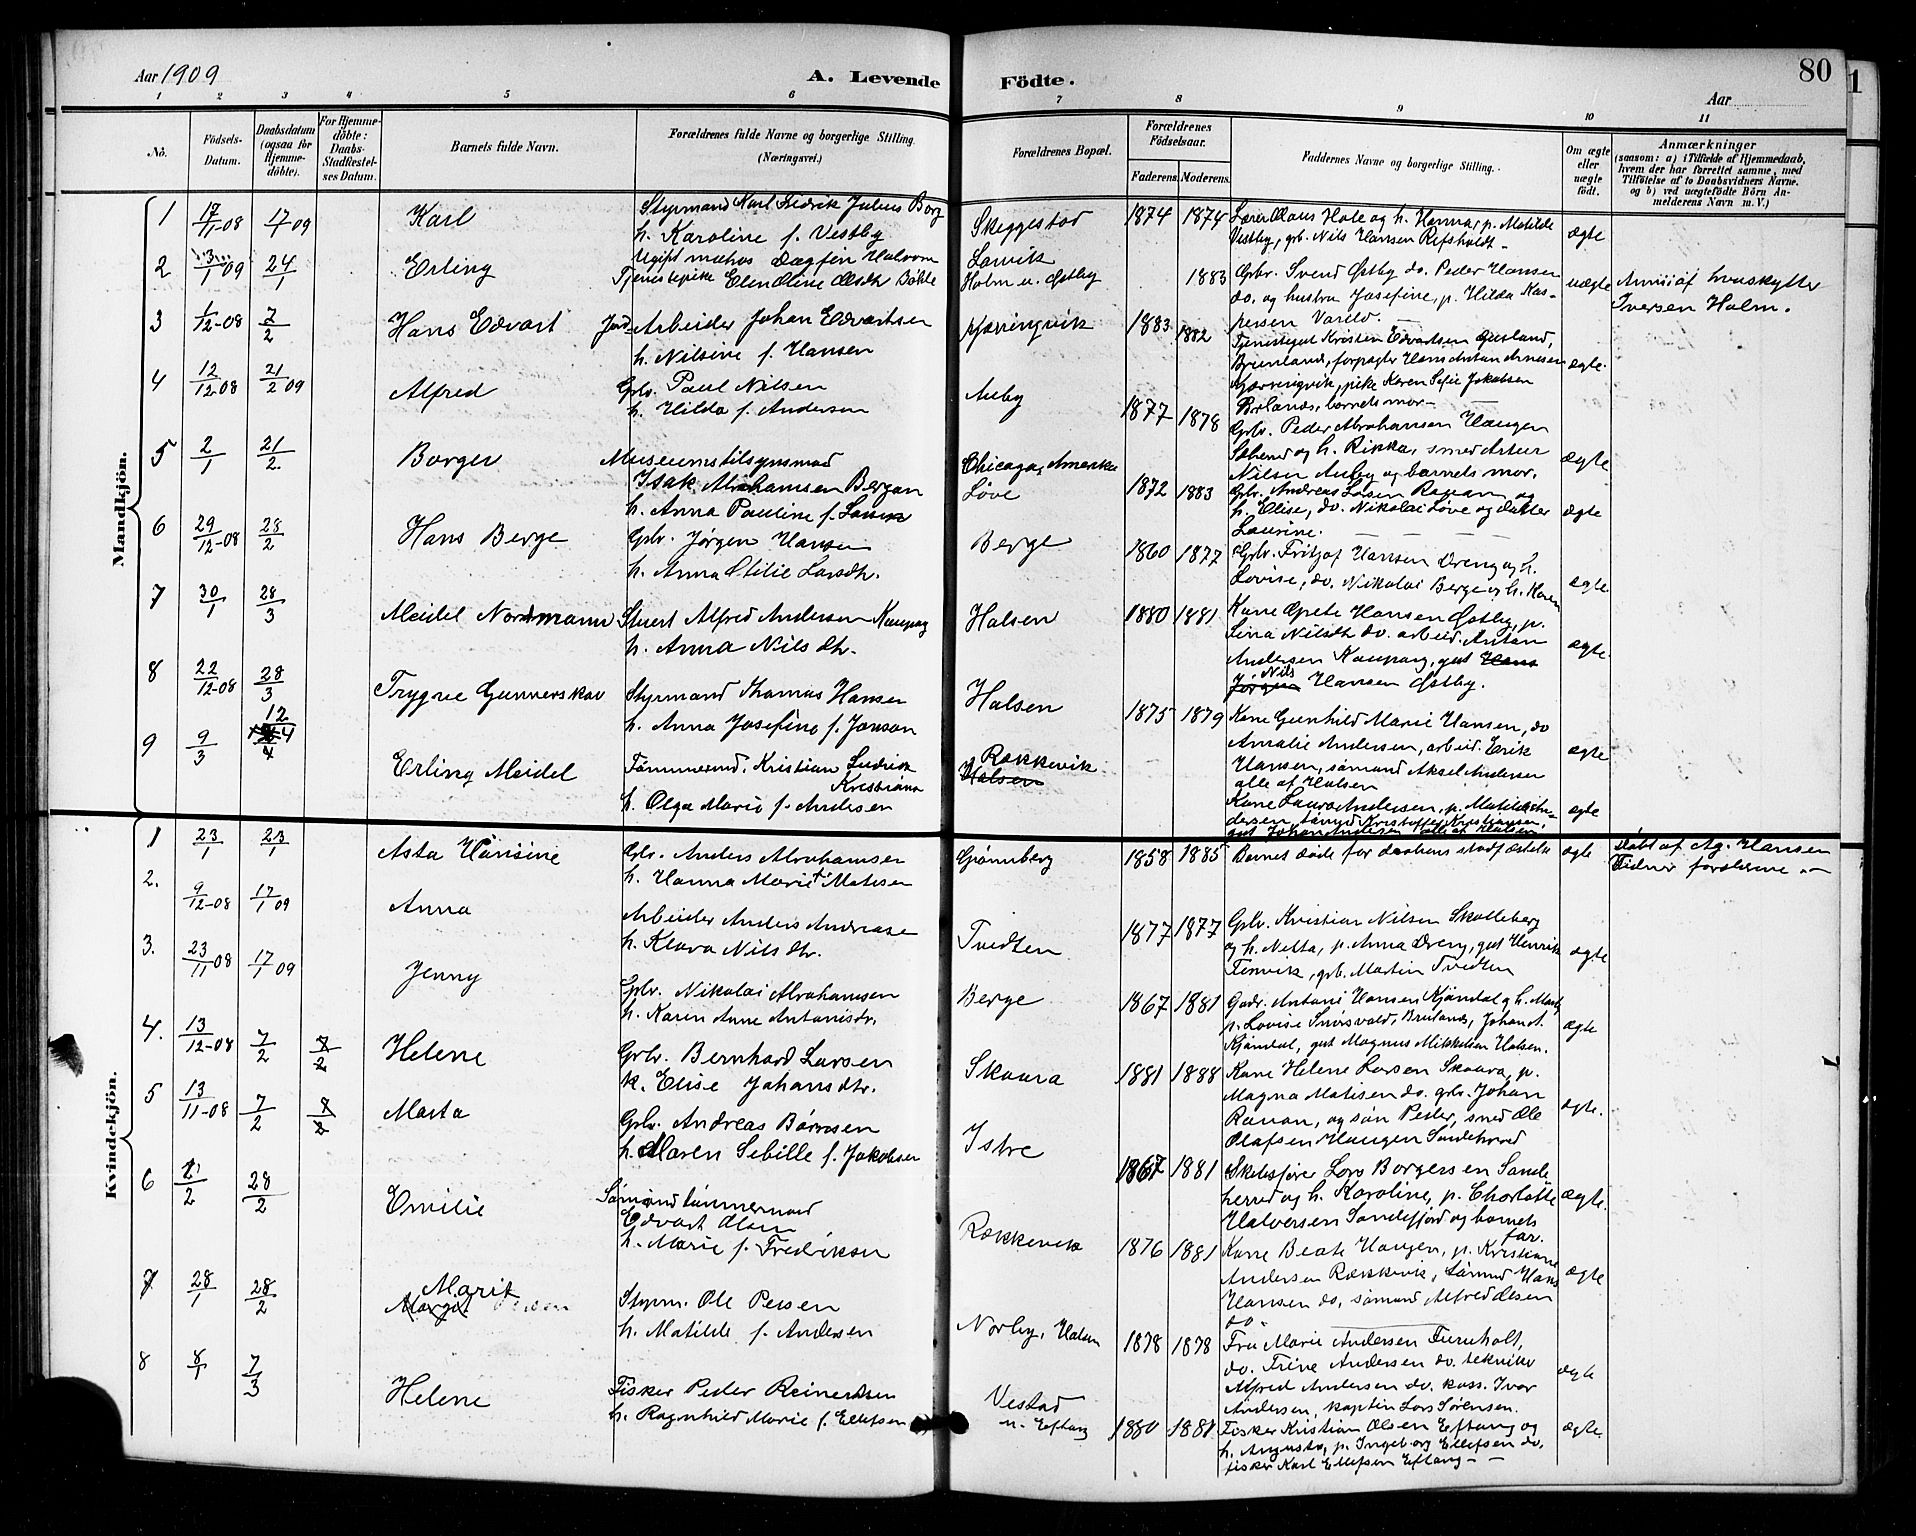 Aar 1909
A. Levende
Födte.
80
Aar
1 2 3 4 5 6 7 8 9 10 11
No.
Födsels-Datum.
Daabsdatum (ogsaa for Hjemme-döbte).
For Hjemme-döbte: Daabs-Stadfæstel-ses Datum.
Barnets fulde Navn.
Forældrenes fulde Navne og borgerlige Stilling.
(Næringsvei.)
Forældrenes Bopæl.
Forældrenes Födselsaar.
Faderens. Moderens.
Faddernes Navne og borgerlige Stilling.
Om ægte eller uægte födt.
Anmærkninger
(saasom: a) i Tilfælde af Hjemmedaab, hvem der har forrettet samme, med Tilföielse af to Daabsvidners Navne. og b) ved uægtefödte Börn Anmelderens Navn m. V.)
Mandkjön.
1 17/1-08 17/1 09 Karl
Styrmand Karl Fredrik Julius Borg
h. Karoline f. Vestby
Skeggestad 1874 1874
Lærer Claus Hole og h. Hanna, p. Matilde
Vestby, grb. Nils Hansen Refsholdt -
ægte
2 3/1 09 24/1 Erling
Ugift mathos Dagfin Halvorn Larvik
Tjenestepike Elen Oline Olsdtr Bökle
Holm u. Østby 1883
Grbr. Svend Østby do. Peder Hansen
do. og hustru Josefine, p. Hilda Kas-
persen Varild.
uægte
Iversen Holm.
3 1/12-08 7/2 Hans Edvart
Jord Arbeider Johan Edvartsen
h. Nilsine f. Hansen
Kjærringvik 1883 1882
Tjenestegut Kristen Edvartsen
Bruniand, forpagter Hans Anton Arnesen
Kjærringvik, pike Karen Sofie Jakobsen
Brlands, barnets mor -
ægte.
4 12/12-08 21/2 09 Alfred
Grbr. Paul Nilsen
h. Hilda f. Andersen
Auby 1877 1878
Grbr. Peder Abrahamsen Haugen
og h. Rikka, smed Artur
Nilsen Auby og barnets mor.
ægte
5 2/1 21/2 Borger
Museumstilsynsmad
Isak Abrahamsen Bergan
h. Anna Pauline f. Larsen
Chicago, Amerika
Løve 1872 1883
Grbr. Andreas Larsen Ranan og
h. Elise, do. Nikolai Løve og datter
Laurine.
ægte
6 29/12-08 28/2 Hans Berge
Grbr. Jørgen Hansen
h. Anna Otilie Larsdtr.
Berge 1860 1877
Grbr. Fritjof Hansen Dreng og h.
Lovise, do. Nikolai Berge og h. Karen
ægte
7 30/1 28/3 Meidel Nordmann
Stuert Alfred Andersen Kaupang
h. Anna Nilsdtr.
Halsen 1880 1881
Kone Grete Hansen Østby, p.
Lina Nilsdtr do. arbeid. Anton
Andersen Kaupang, gut Hans
Nils
Jørgen Hansen Østby.
ægte.
8 22/12-08 28/3 Trygve Gunnerskov
Styrmand Thomas Hansen
h. Anna Josefine f. Jonson
Halsen 1875 1879
Kone Gunhild Marie Hansen, do
Amalie Andersen, arbeid. Erik
Hansen, sømand Aksel Andersen
alle af Halsen
ægte
9 9/3 12/4 Erling Meidel
Tømmermd. Kristian Ludvik
Kristians
h. Olga Marie f. Andersen
Rækkevik
Halsen
Kone Laura Andersen, p. Matilde An-
dersen, sømnd Kristoffer Kristiansen,
gut Johan Andersen alle af Halsen
ægte
Kvindekjön.
1 23/1 23/1 Asta Hansine
Grbr. Anders Abrahamsen
h. Hanna Marie Matisen
Grønnberg 1858 1885
Barnet døde før daabens stadfæstelse
ægte
Døbt af Ag. Hansen
Vidner forældrene -
2. 9/12-08 17/1 09 Anna
Arbeider Anders Andreasen
h. Klara Nilsdtr.
Tvedten 1877 1877
Grbr. Kristian Nilsen Skalleberg
og h. Netta, p. Anna Dreng, gut Henrik
Fenvik, grb. Martin Tvedten
ægte
3. 23/11 08 17/1 09 Jenny
Grbr. Nikolai Abrahamsen
h. Karen Anne Antonisdtr.
Berge 1867 1881
Gadr. Antoni Hansen Kjøndal og h. Marty
p. Lovise Snørsvald, Brulands, Johan A.
Kjøndal, gut Magnus Mikkelsen Halsen.
ægte
4. 13/12-08 7/2 7/2 Helene
Grbr. Bernhard Larsen
h. Elise Johansdtr.
Skaara 1881 1888
Kone Helene Larsen Skaara, p.
Magna Matisen do. grbr. Johan
Ranan, og søn Peder, smed Ole
Olafsen Haugen Sandeherred
ægte.
5 13/11-08 7/2 7/2 Marta
Grbr. Andreas Børresen
h. Maren Sebille f. Jakobsen
Istre 1867 1881
Skibsfører Lars Borgersen Sande
herred og h. Karoline, p. Charlotte
Halversen Sandefjord og barnets
far.
ægte.
6 1/2 28/2 Emilie
Sømand tømmermand
Edvart Olsen
h. Marie f. Fredriksen
Rækkevik 1876 1881
Kone Beate Haugen, p. Kristiane
Andersen Rækkevik, Sømnd Hans
Hansen do, sømand Alfred Olsen
do -
ægte
7 28/1 28/2 Marit
Margit
Styrm. Ole Persen
h. Matilde f. Andersen
Norby, Halsen 1878 1878
Fru Marie Andersen Furuholt,
do. Trine Andersen do. tekniker
Alfred Andersen do. kass. Ivar
Andersen, kaptin Lars Sørensen.
ægte
8 8/1 7/3 Helene
Fisker Peder Reinertsen
h. Ragnhild Marie f. Ellefsen
Vestad
u. Eftang 1880 1881
Fisker Kristian Olsen Eftang og
h. Augusta, p. Ingeborg Ellefsen do,
fisker Karl Ellefsen Eftang -
ægte.